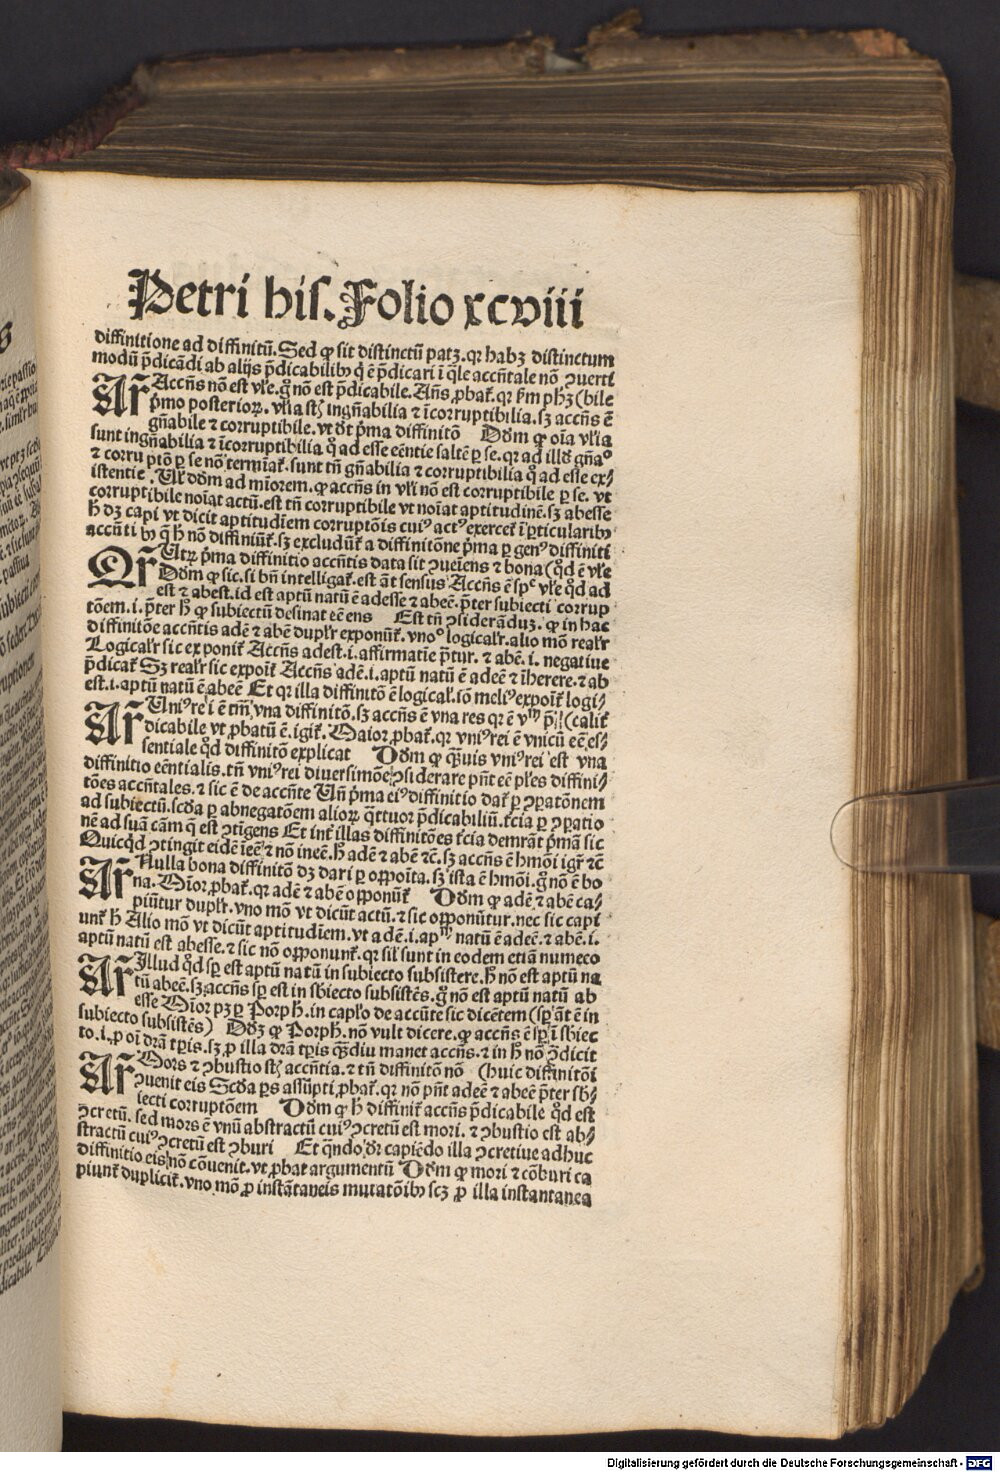 Petri hiſ. Folio xcviii
diffinitione ad diffinitū. Sed ꝙ ſit distinctū patꝫ. qꝛ habꝫ distinctum
modū p̄dicādi ab alijs p̄dicabilibꝰ q̇ ē p̄dicari ī q̄le accn̄tale nō ↄuerti
Ar̄ Accn̄s nō est vl̄e. g̊ nō est p̄dicabile. An̄s ꝓbat̄. qꝛ ẜm ph̄ꝫ (bile
p̄mo posterioꝝ. vl̄ia st̄ ingn̄abilia ⁊ īcorruptibilia. ſꝫ accn̄s ē
gn̄abile ⁊ corruptibile. vt d̄t p̄ma diffinitō Dd̄m ꝙ oīa vl̄ia
sunt ingn̄abilia ⁊ īcorruptibilia q̊ ad esse eēntie saltē ꝑ se. qꝛ ad illd̄ gn̄aᵒ
⁊ corru ptō ꝑ se nō termīat̄. sunt tn̄ gn̄abilia ⁊ corruptibilia q̊ ad esse ex⸗
istentie. Vl̄r dd̄m ad mīorem. ꝙ accn̄s in vl̄i nō est corruptibile ꝑ se. vt
corruptibile noīat actū. est tn̄ corruptibile vt noīat aptitudinē. ſꝫ abesse
h̄ dꝫ capi vt dicit aptitudīem corruptōis cuiꝰ actꝰ exercet̄ ī ꝑticularibꝰ
accn̄ti bꝰ q̇ h̄ nō diffiniūt̄. ſꝫ excludūt̄ a diffinitōne p̄ma ꝑ genꝰ diffiniti
Qr̄ Utꝝ p̄ma diffinitio accn̄tis data sit ↄueīens ⁊ bona (q̊d ē vl̄e
Dd̄m ꝙ sic. si bn̄ intelligat̄. est āt sensus Accn̄s ē spᵉ vl̄e q̊d ad
est ⁊ abest. id est aptū natū ē adesse ⁊ abeē. p̄ter subiecti corrup
tōem. i. p̄ter h̄ ꝙ subiectū desinat eē ens Est tn̄ ↄsiderādū. ꝙ in hac
diffinitōe accn̄tis adē ⁊ abē dupl̄r exponūt̄. vnoᵒ logical̄r. alio mō real̄r
Logical̄r sic ex ponit̄ Accn̄s adest. i. affirmatīe p̄tur. ⁊ abē. i. negatiue
p̄dicat̄ Sꝫ real̄r sic expoīt̄ Accn̄s adē. i. aptū natū ē adeē ⁊ īherere. ⁊ ab
est. i. aptū natū ē abeē Et qꝛ illa diffinitō ē logical̄. iō meliꝰ expoīt̄ logi⸗
Ar̄ Uniꝰ rei ē tm̄ vna diffinitō. ſꝫ accn̄s ē vna res qꝛ ē vᵐ p̄ (calit̄
dicabile vt ꝓbatū ē. igit̄. Maior ꝓbat̄. qꝛ vniꝰ rei ē vnicū eē es⸗
sentiale q̊d diffinitō explicat Dd̄m ꝙ q̄uis vniꝰ rei est vna
diffinitio eēntialis. tn̄ vniꝰ rei diuersimōe ↄsiderare pn̄t eē pl̄es diffini⸗
tōes accn̄tales. ⁊ sic ē de accn̄te Un̄ p̄ma eiꝰ diffinitio dat̄ ꝑ ↄꝑatōnem
ad subiectū. scd̄a ꝑ abnegatōem alioꝝ. q̄ttuor p̄dicabiliū. t̄cia ꝑ ↄꝑatio
nē ad suā cām q̄ est ↄtīgens Et int̄ illas diffinitōes t̄cia demr̄at p̄mā sic
Quicq̇d ↄtingit eidē īeē ⁊ nō ineē. h̄ adē ⁊ abē ⁊c̄. ſꝫ accn̄s ē hmōi igr̄ ⁊c̄
Ar̄ Nulla bona diffinitō dꝫ dari ꝑ oppoīta. ſꝫ ista ē hmōi. g̊ nō ē bo
na. Mīor ꝓbat̄. qꝛ adē ⁊ abē opponūt̄ Dd̄m ꝙ adē ⁊ abē ca⸗
piūtur dupl̄r. vno mō vt dicūt actū. ⁊ sic opponūtur. nec sic capi
unt̄ h̄ Alio mō vt dicūt aptitudīem. vt adē. i. apᵐ natū ē adeē. ⁊ abē. i.
aptū natū est abesse. ⁊ sic nō opponunt̄. qꝛ sil̄ sunt in eodem etiā numeco
Ar̄ Illud q̊d sꝑ est aptū natū in subiecto subsistere. h̄ nō est aptū na
tū abeē. ſꝫ accn̄s sꝑ est in sb̄iecto subsistēs. g̊ nō est aptū natū ab
esse Mīor pꝫ ꝑ Porph̄. in capl̄o de accn̄te sic dicētem (sꝑ āt ē in
subiecto subsistēs) Dd̄ꝫ ꝙ Porph̄. nō vult dicere. ꝙ accn̄s ē sꝑ ī sb̄iec
to. i. ꝓ oī dr̄a tꝑis. ſꝫ ꝓ illa dr̄a tꝑis q̄ꝫdiu manet accn̄s. ⁊ in h̄ nō ↄ̄dicit
Ar̄ Mors ⁊ ↄbustio st̄ accn̄tia. ⁊ tn̄ diffinitō nō (huic diffinitōi
ↄuenit eis Scd̄a ꝑs assūpti ꝓbat̄. qꝛ nō pn̄t adeē ⁊ abeē p̄ter sb̄⸗
iecti corruptōem Dd̄m ꝙ h̄ diffinit̄ accn̄s p̄dicabile q̊d est
ↄcretū. sed mors ē vnū abstractū cuiꝰ ↄcretū est mori. ⁊ ↄbustio est ab⸗
stractū cuiꝰ ↄcretū est ↄburi Et q̄ndo d̄r capiēdo illa ↄcretiue adhuc
diffinitio eis nō cōuenit. vt ꝓbat argumentū Dd̄m ꝙ mori ⁊ cōburi ca
piunt̄ duplicit̄. vno mō ꝓ instātaneis mutatōibꝰ scꝫ ꝓ illa instantanea
Digitalisierung gefördert durch die Deutsche Forschungsgemeinschaft - DFG